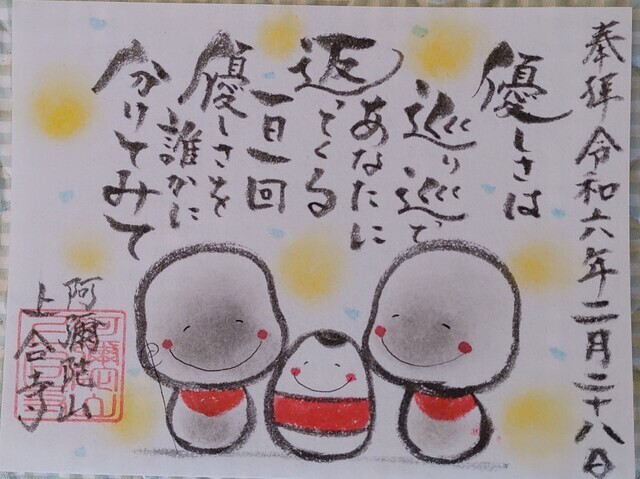 奉拝令和六年二月二十八日
優しさは
巡り巡って
あなたに
返ってくる
一日一回
優しさを
誰かに
分けてみて
阿彌陀山
上合寺